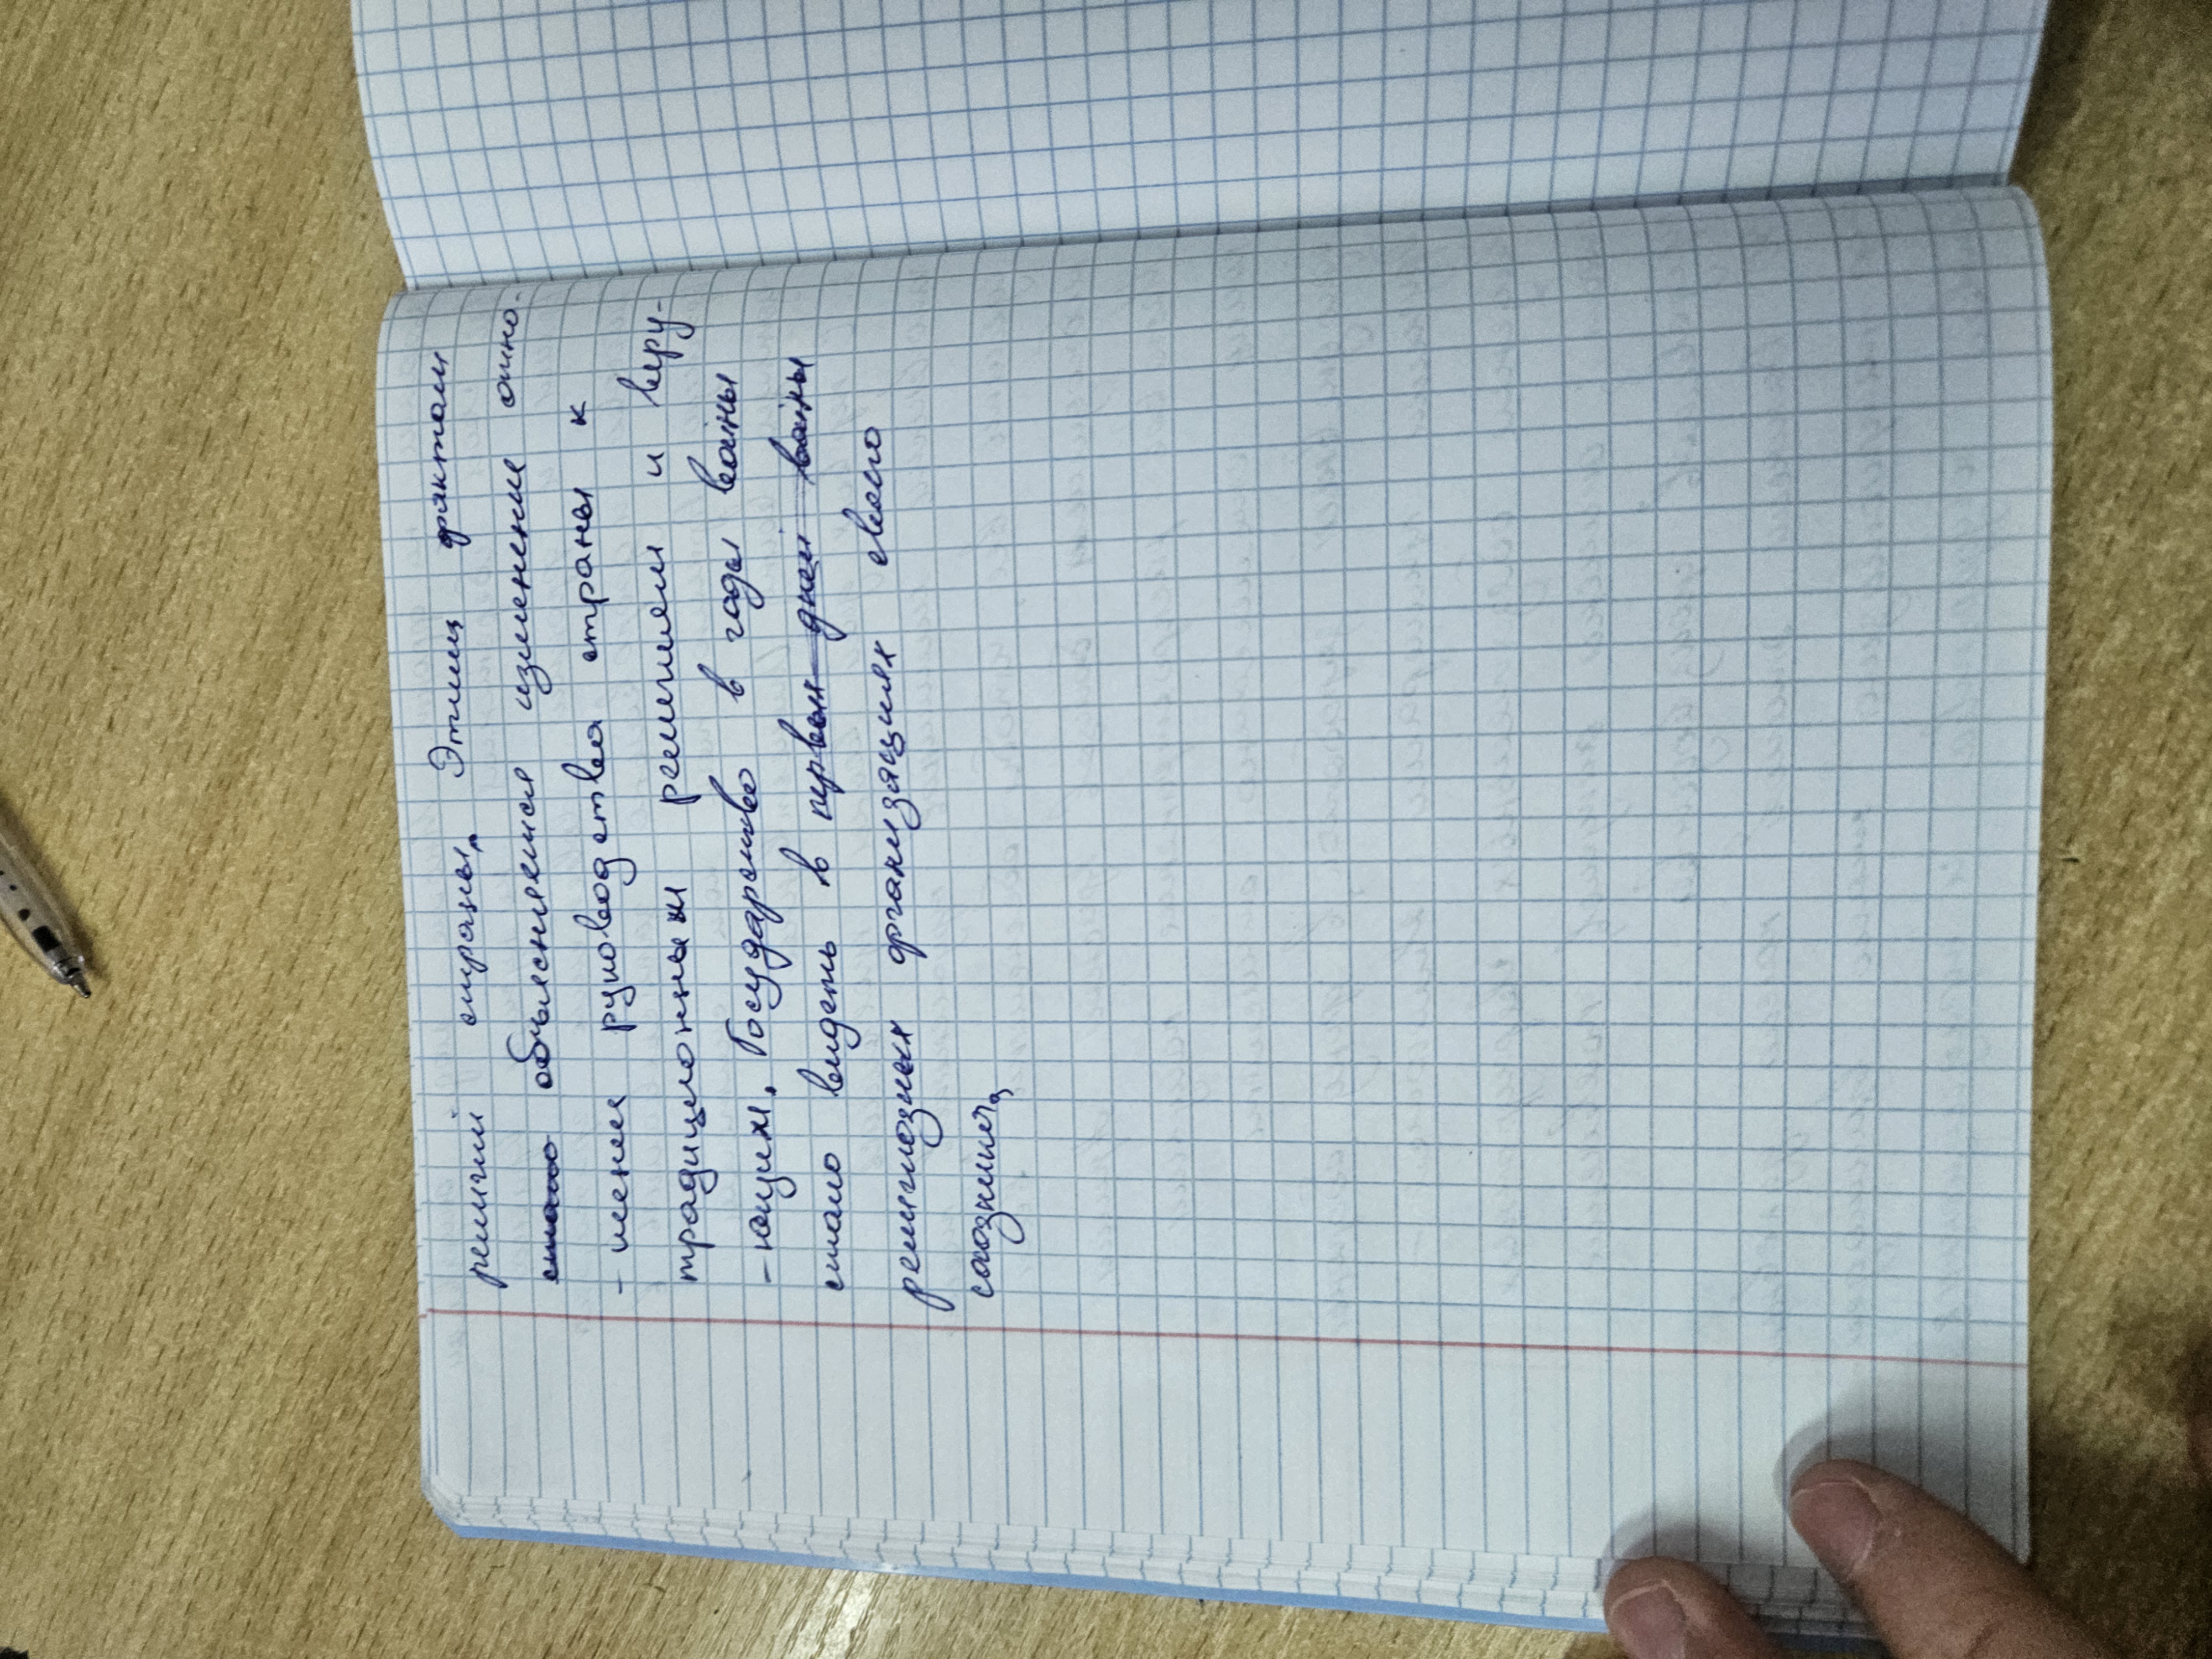 религий страны. Этим фактом
стало объясняется изменение отно-
-шения руководства страны к
традиционным религиям и веру-
-ющих. Государство в годы войны
стало видеть в первых дней войны
религиозных организациях своего
союзника